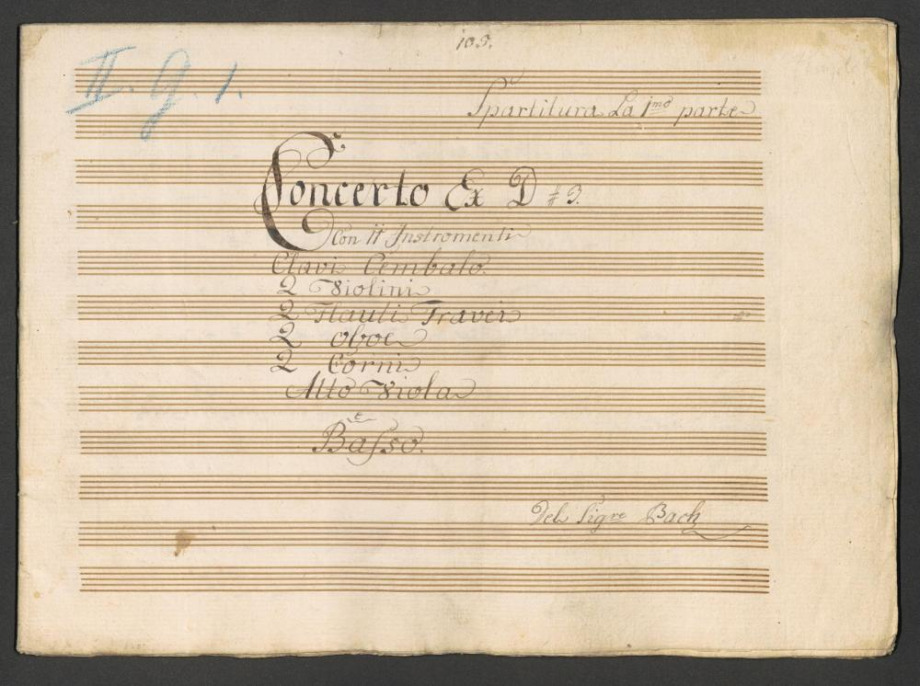 105.
II. 9. 1.
Spartitura La 1mo parte
Concerto Ex D ♯ 3.
Con 11 Instromenti
Clavi Cembalo.
2 Violini
2 Flauti Traver
2 oboe
2 Corni
Alto Viola
e
Basso.
Del Sigre Bach